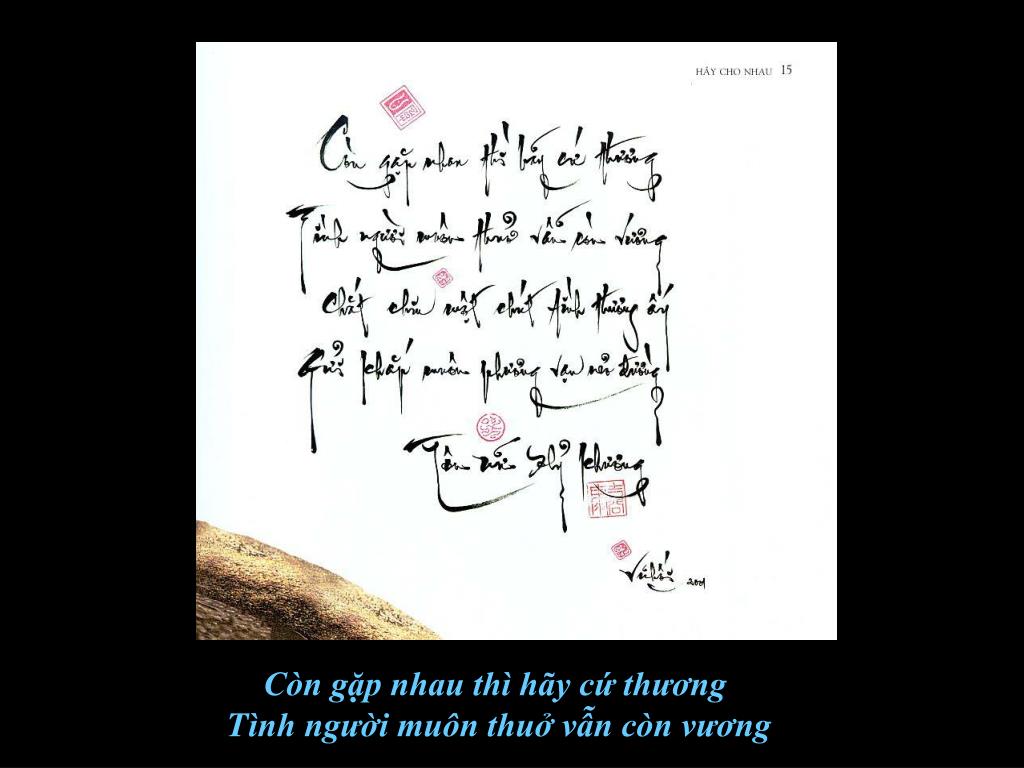 HÃY CHO NHAU 15
Còn gặp nhau thì hãy cứ thương
Tình người muôn thuở vẫn còn vương
Chắt chiu một chút tình thương ấy
Gửi khắp muôn phương vạn nẻo đường
Tôn Nữ Hỷ Khương
Vũ Hối 2001
Còn gặp nhau thì hãy cứ thương
Tình người muôn thuở vẫn còn vương